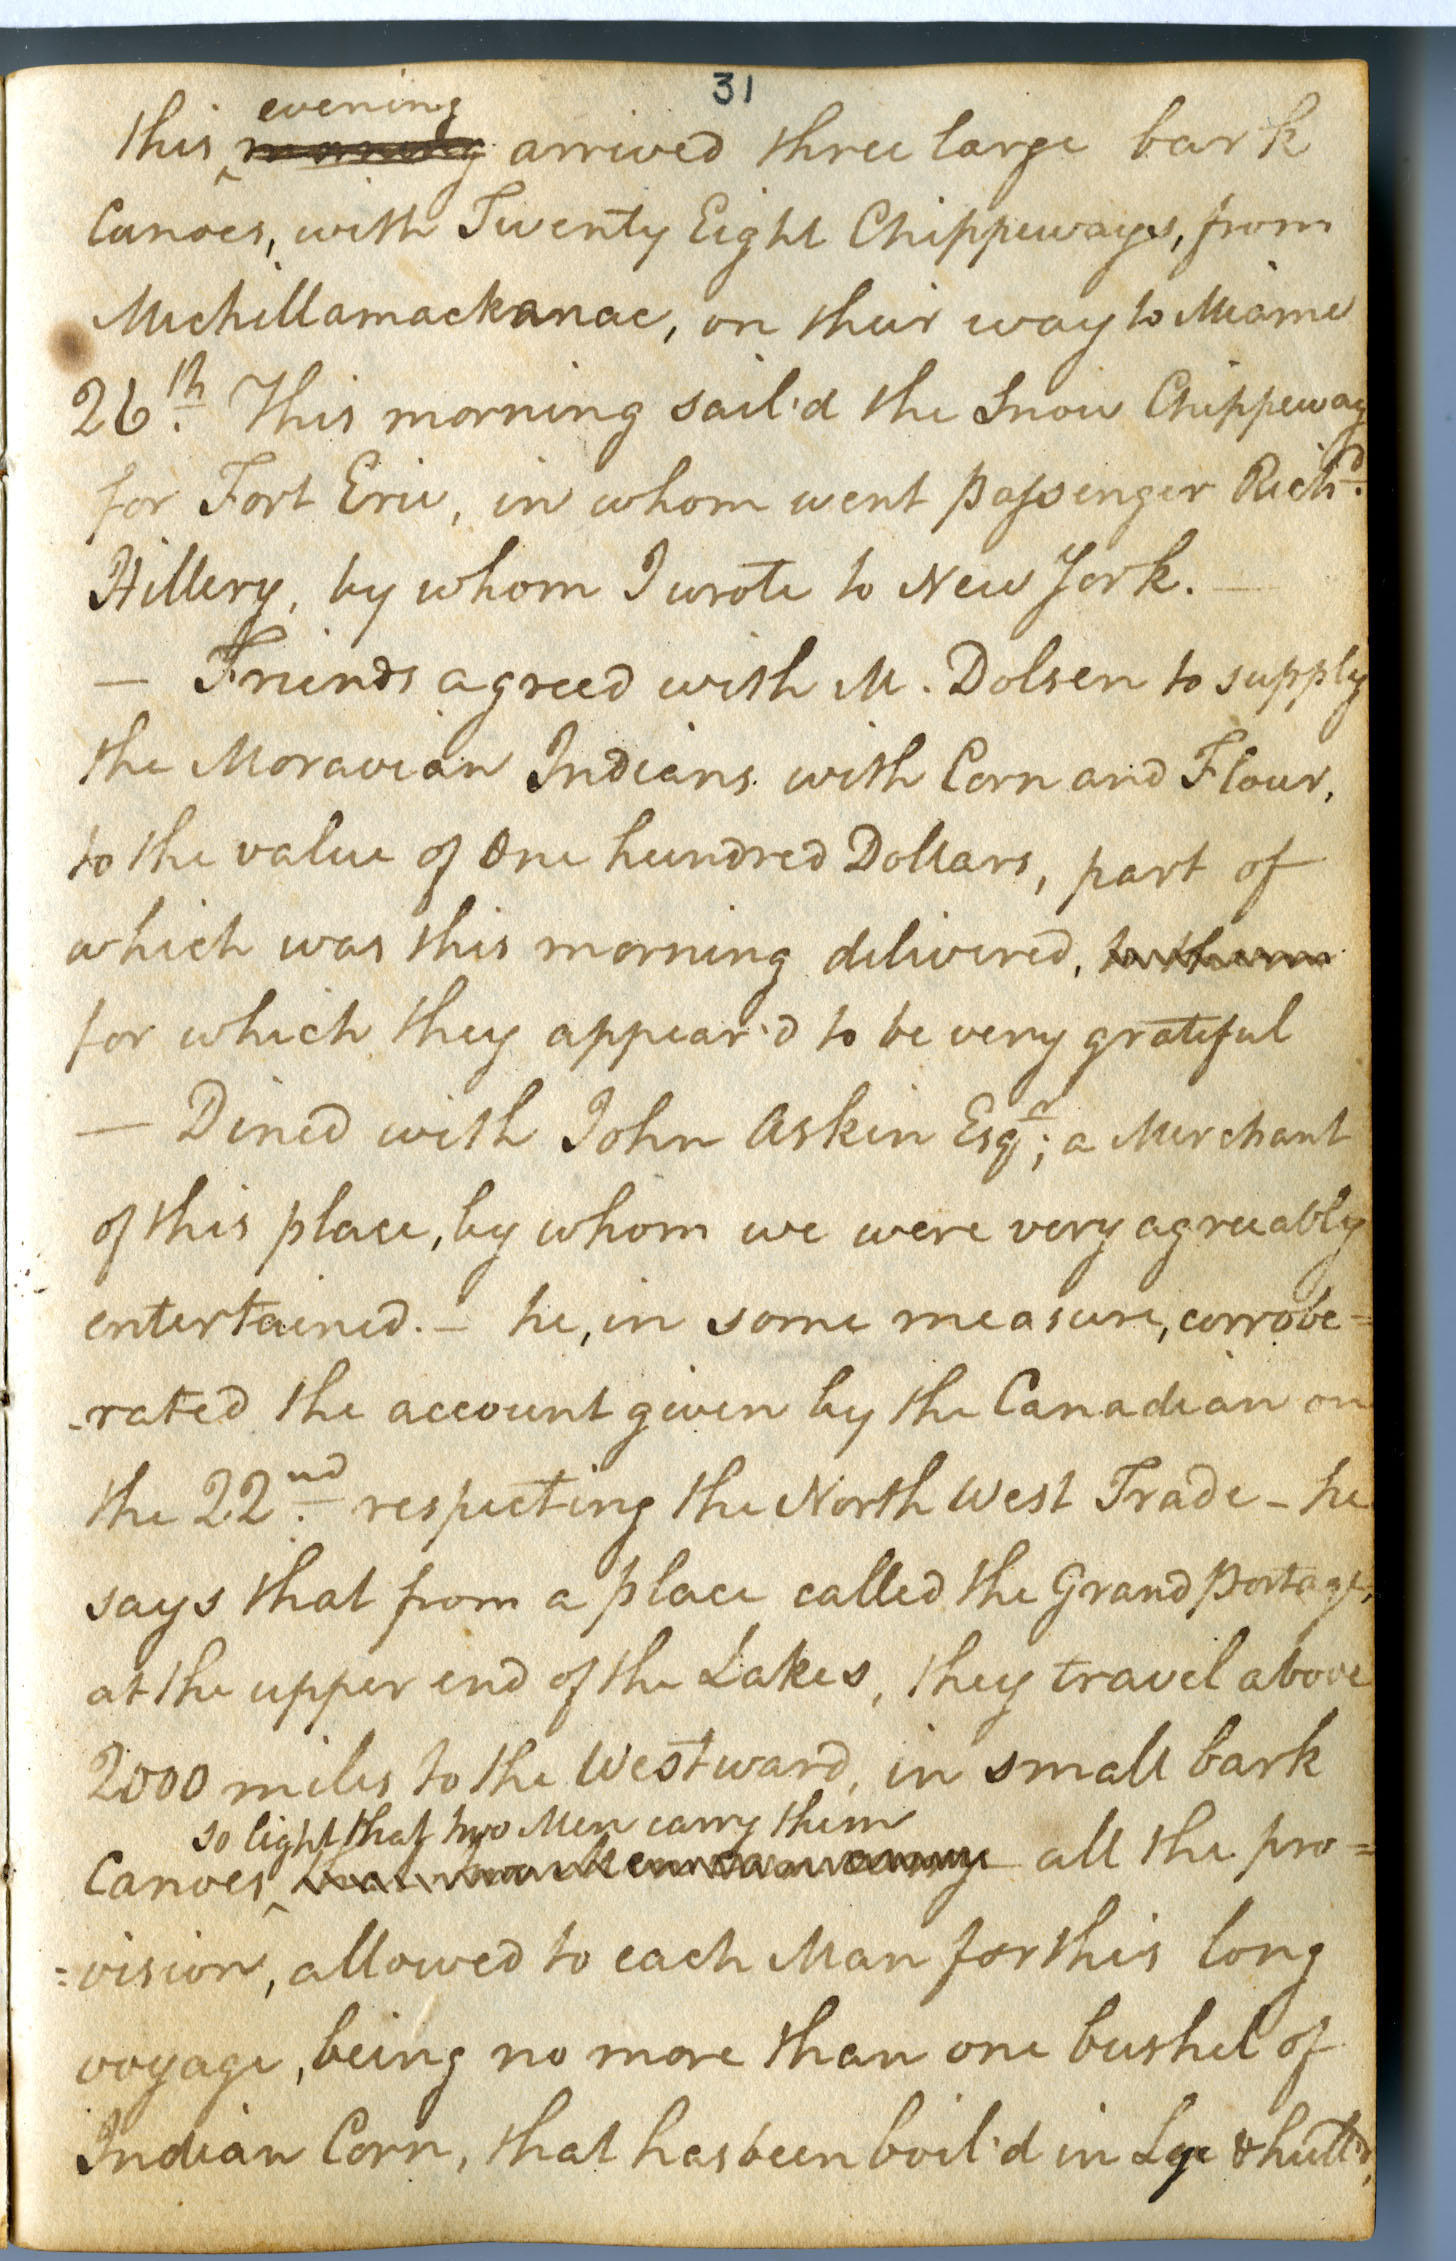 31
evening
this morning arrived three large bark
Canoes, with Twenty Eight Chippeways, from
Michillamackanac, on their way to Miame
26th. This morning sail'd the Snow Chippeway
for Fort Erie, in whom went passenger Richd.
Hillery, by whom I wrote to New York. —
— Friends agreed with M. Dolsen to supply
the Moravian Indians with Corn and Flour,
to the value of One hundred Dollars, part of
which was this morning delivered, to them
for which they appear'd to be very grateful
— Dined with John Askin Esqr; a Merchant
of this place, by whom we were very agreeably
entertained. – he, in some measure, corrobe=
-rated the account given by the Canadian on
the 22nd. respecting the North West Trade – he
says that from a place called the Grand Portage,
at the upper end of the Lakes, they travel above
2000 miles to the Westward, in small bark
so light that two Men carry them
Canoes all the pro=
=vision, allowed to each Man for this long
voyage, being no more than one bushel of
Indian Corn, that has been boil'd in Lye & hull'd,